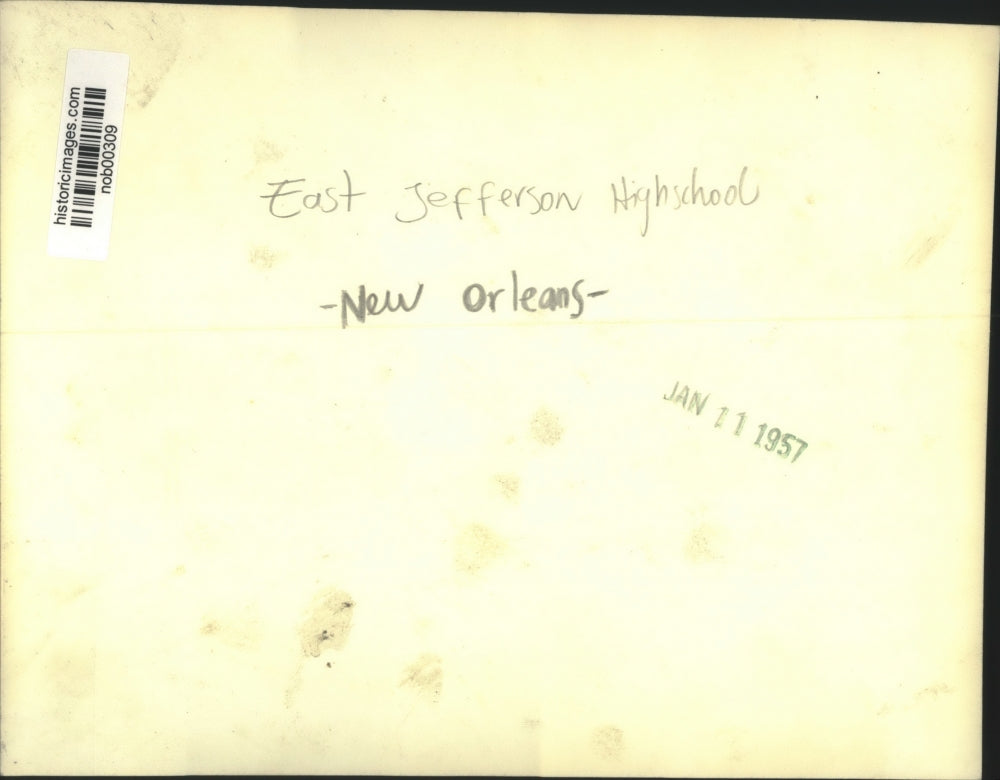 historicimages.com
nob00309
East Jefferson Highschool
-New Orleans-
JAN 11 1957